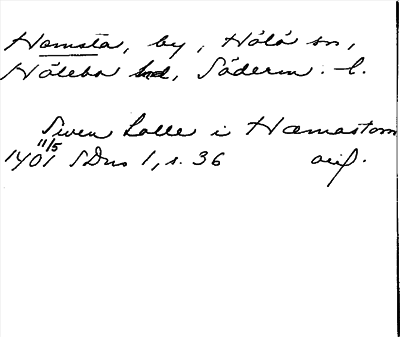 Hamsta, by, Hölö sn,
Hölebo hd, Söderm. l.
Swen Lalle i Hamastom
11/5
1401 SDns 1, s. 36 avf.